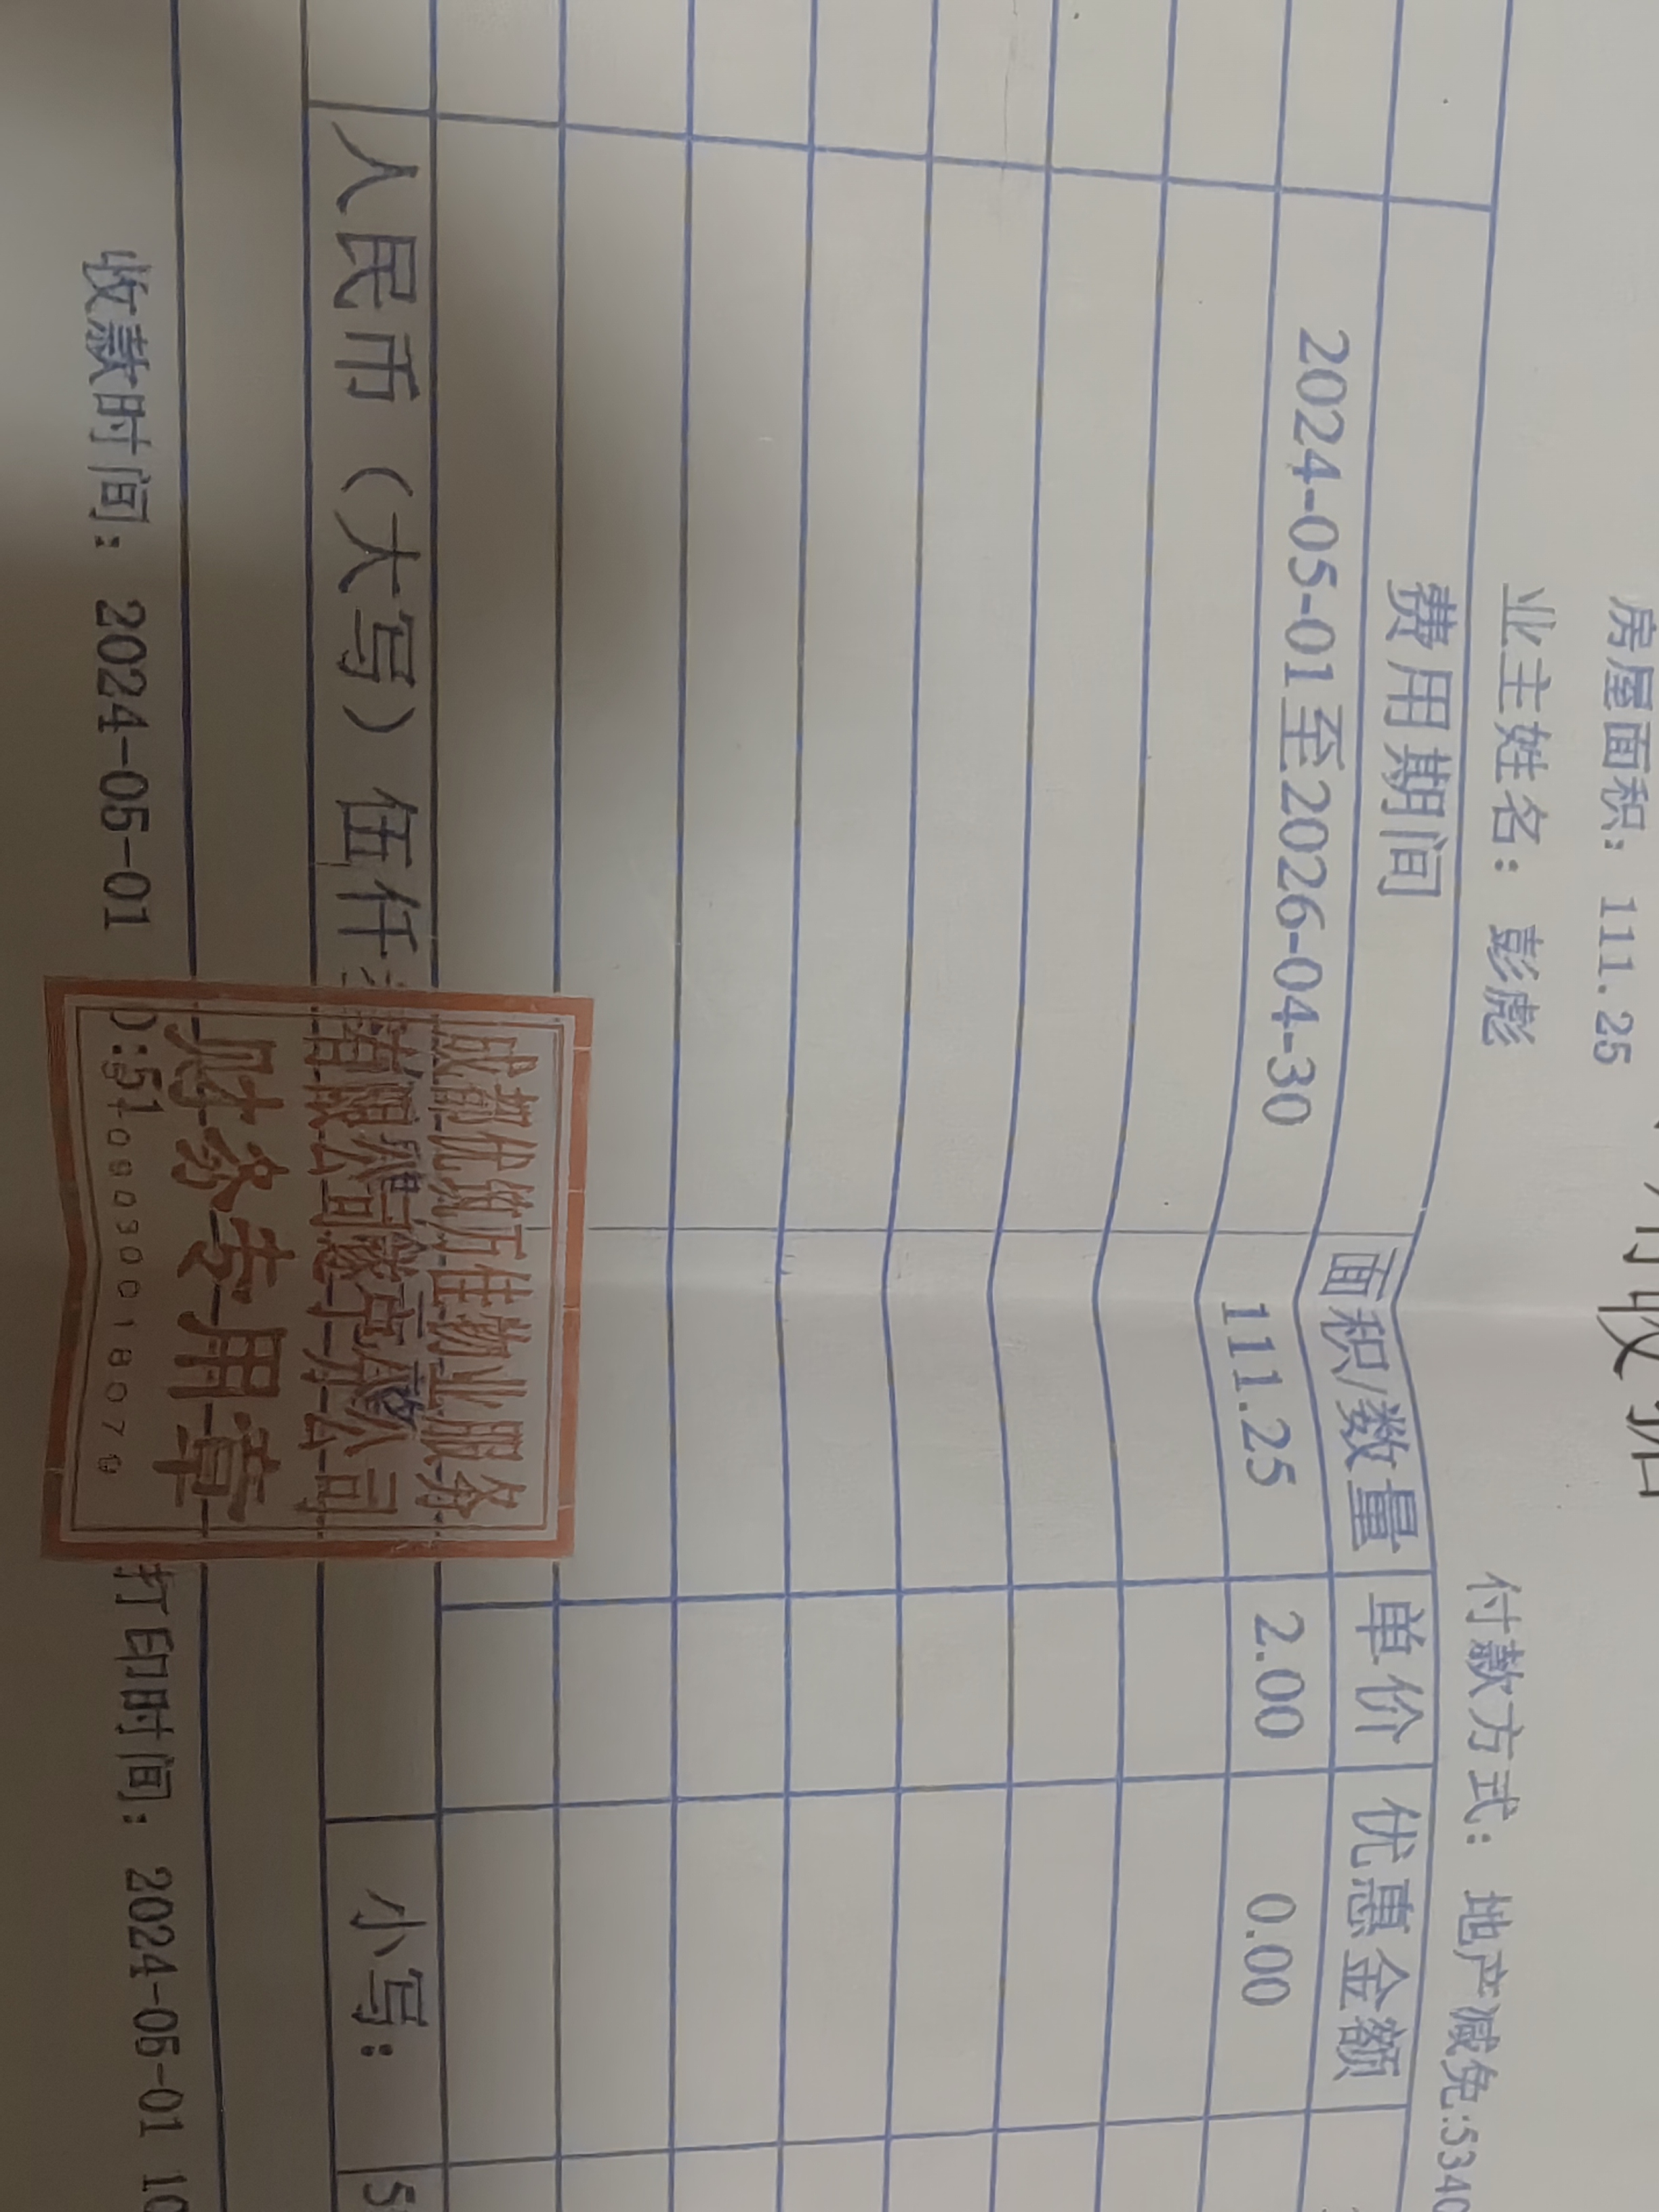 收据
房屋面积：111.25
业主姓名：彭彪 付款方式：地产减免:5340
费用期间 面积/数量 单价 优惠金额
2024-05-01至2026-04-30 111.25 2.00 0.00
人民币（大写）伍仟 小写：5
收款时间：2024-05-01 打印时间：2024-05-01 10
成都优筑万佳物业服务
有限公司遂宁分公司
财务专用章